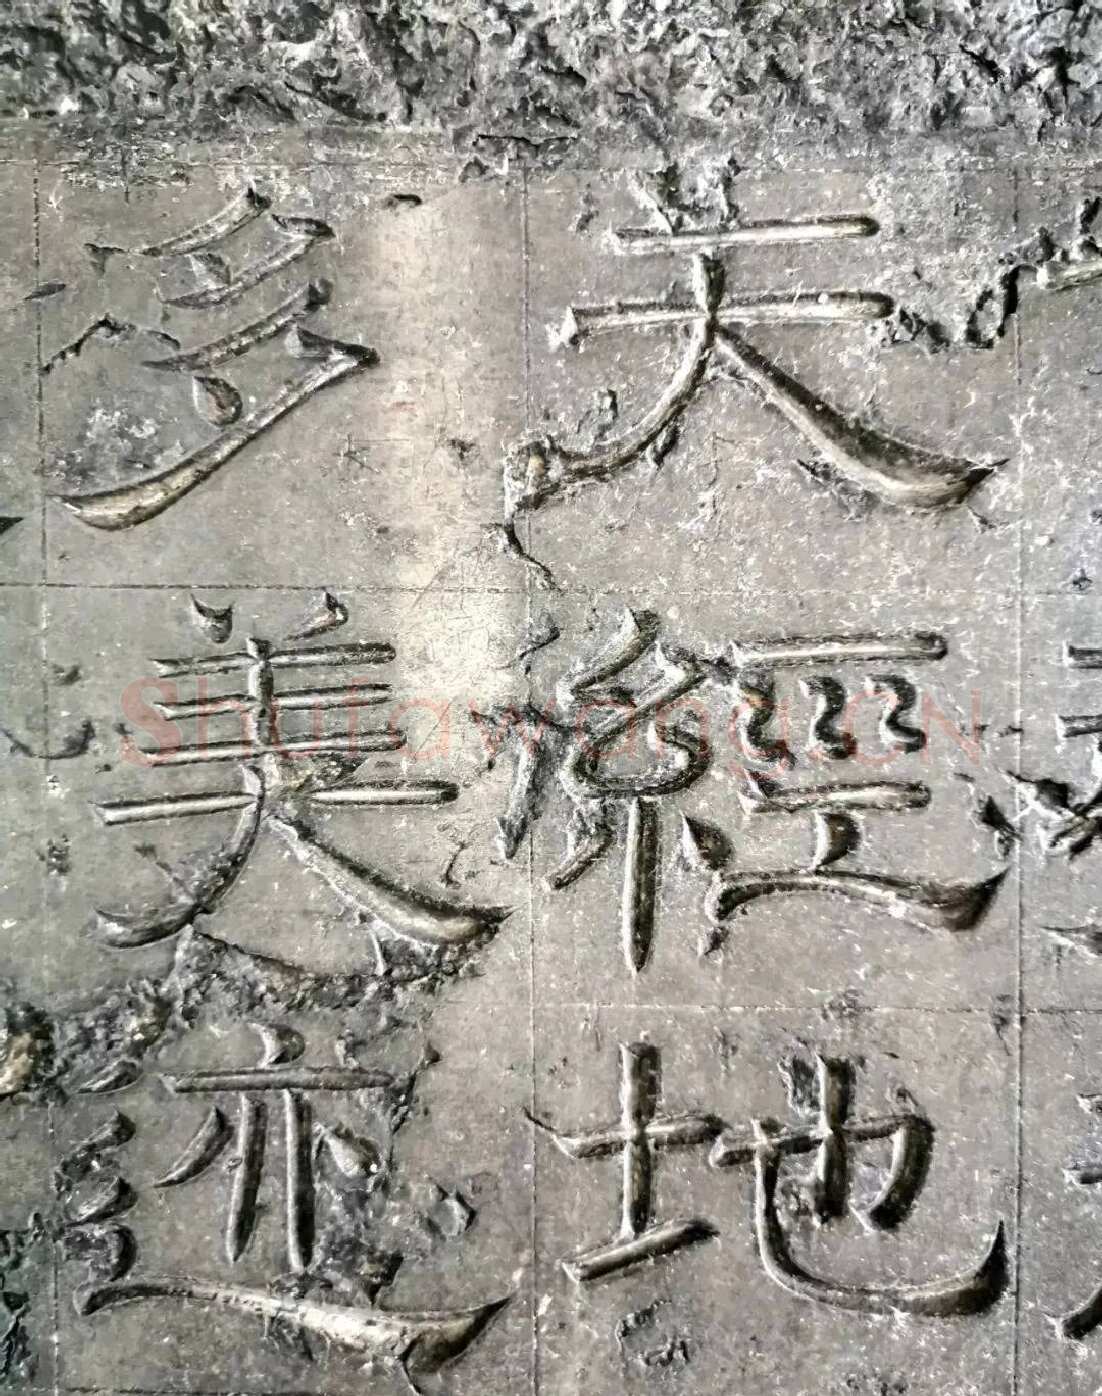 天經地
多美迹
Shufawang.CN